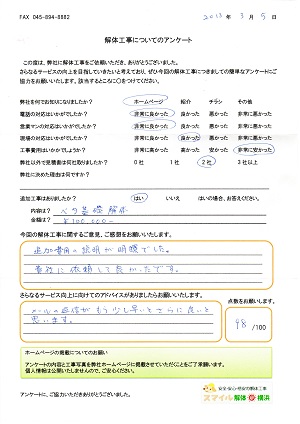 FAX 045-894-8882
2013年 3月 5日
解体工事についてのアンケート
この度は、弊社に解体工事をご依頼いただき、ありがとうございました。
さらなるサービスの向上を目指していきたいと考えており、ぜひ今回の解体工事につきましての簡単なアンケートにご
協力をお願いします。該当するところに○をつけてください。
弊社を何でお知りになりましたか? ホームページ 紹介 チラシ その他
電話の対応はいかがでしたか? 非常に良かった 良かった 悪かった 非常に悪かった
営業マンの対応はいかがでしたか? 非常に良かった 良かった 悪かった 非常に悪かった
現場の対応はいかがでしたか? 非常に良かった 良かった 悪かった 非常に悪かった
工事費用はいかがでしょうか? 非常に高かった 高かった 安かった 非常に安かった
弊社以外で見積書は何社取りましたか? 0社 1社 2社 3社以上
弊社に決めた理由は何ですか?
追加工事はありましたか? はい いいえ はいの場合、お答えください。
内容は? ベタ基礎 解体
金額は? ¥100,000-
今回の解体工事に関するご意見、ご感想をお願いいたします。
追加費用の説明が明瞭でした。
貴社に依頼して良かったです。
さらなるサービス向上に向けてのアドバイスがありましたらお願いいたします。
点数をお願いします。
メールの返信がもう少し早いとさらに良いと
思います。
98 /100
ホームページの掲載についてのお願い
アンケートの内容と工事写真を弊社ホームページに掲載させていただくことをご了承願います。
個人情報は公開いたしませんので、ご安心ください。
アンケートに、ご協力いただきありがとうございました。
安全・安心・感安の解体工事
スマイル解体@横浜